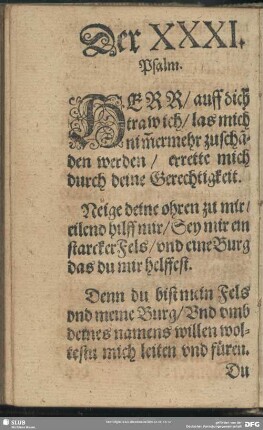 Der XXXI.
Psalm.
HERR/ auff dich
traw ich/ las mich
nim̃ermehr zuschã-
den werden/ errette mich
durch deine Gerechtigkeit.
Neige deine ohren zu mir/
eilend hilff mir/ Sey mir ein
starcker Fels/ vnd eine Burg
das du mir helffest.
Denn du bist mein Fels
vnd meine Burg/ Vnd vmb
deines namens willen wol-
testu mich leiten vnd füren.
Du
SLUB
DFG